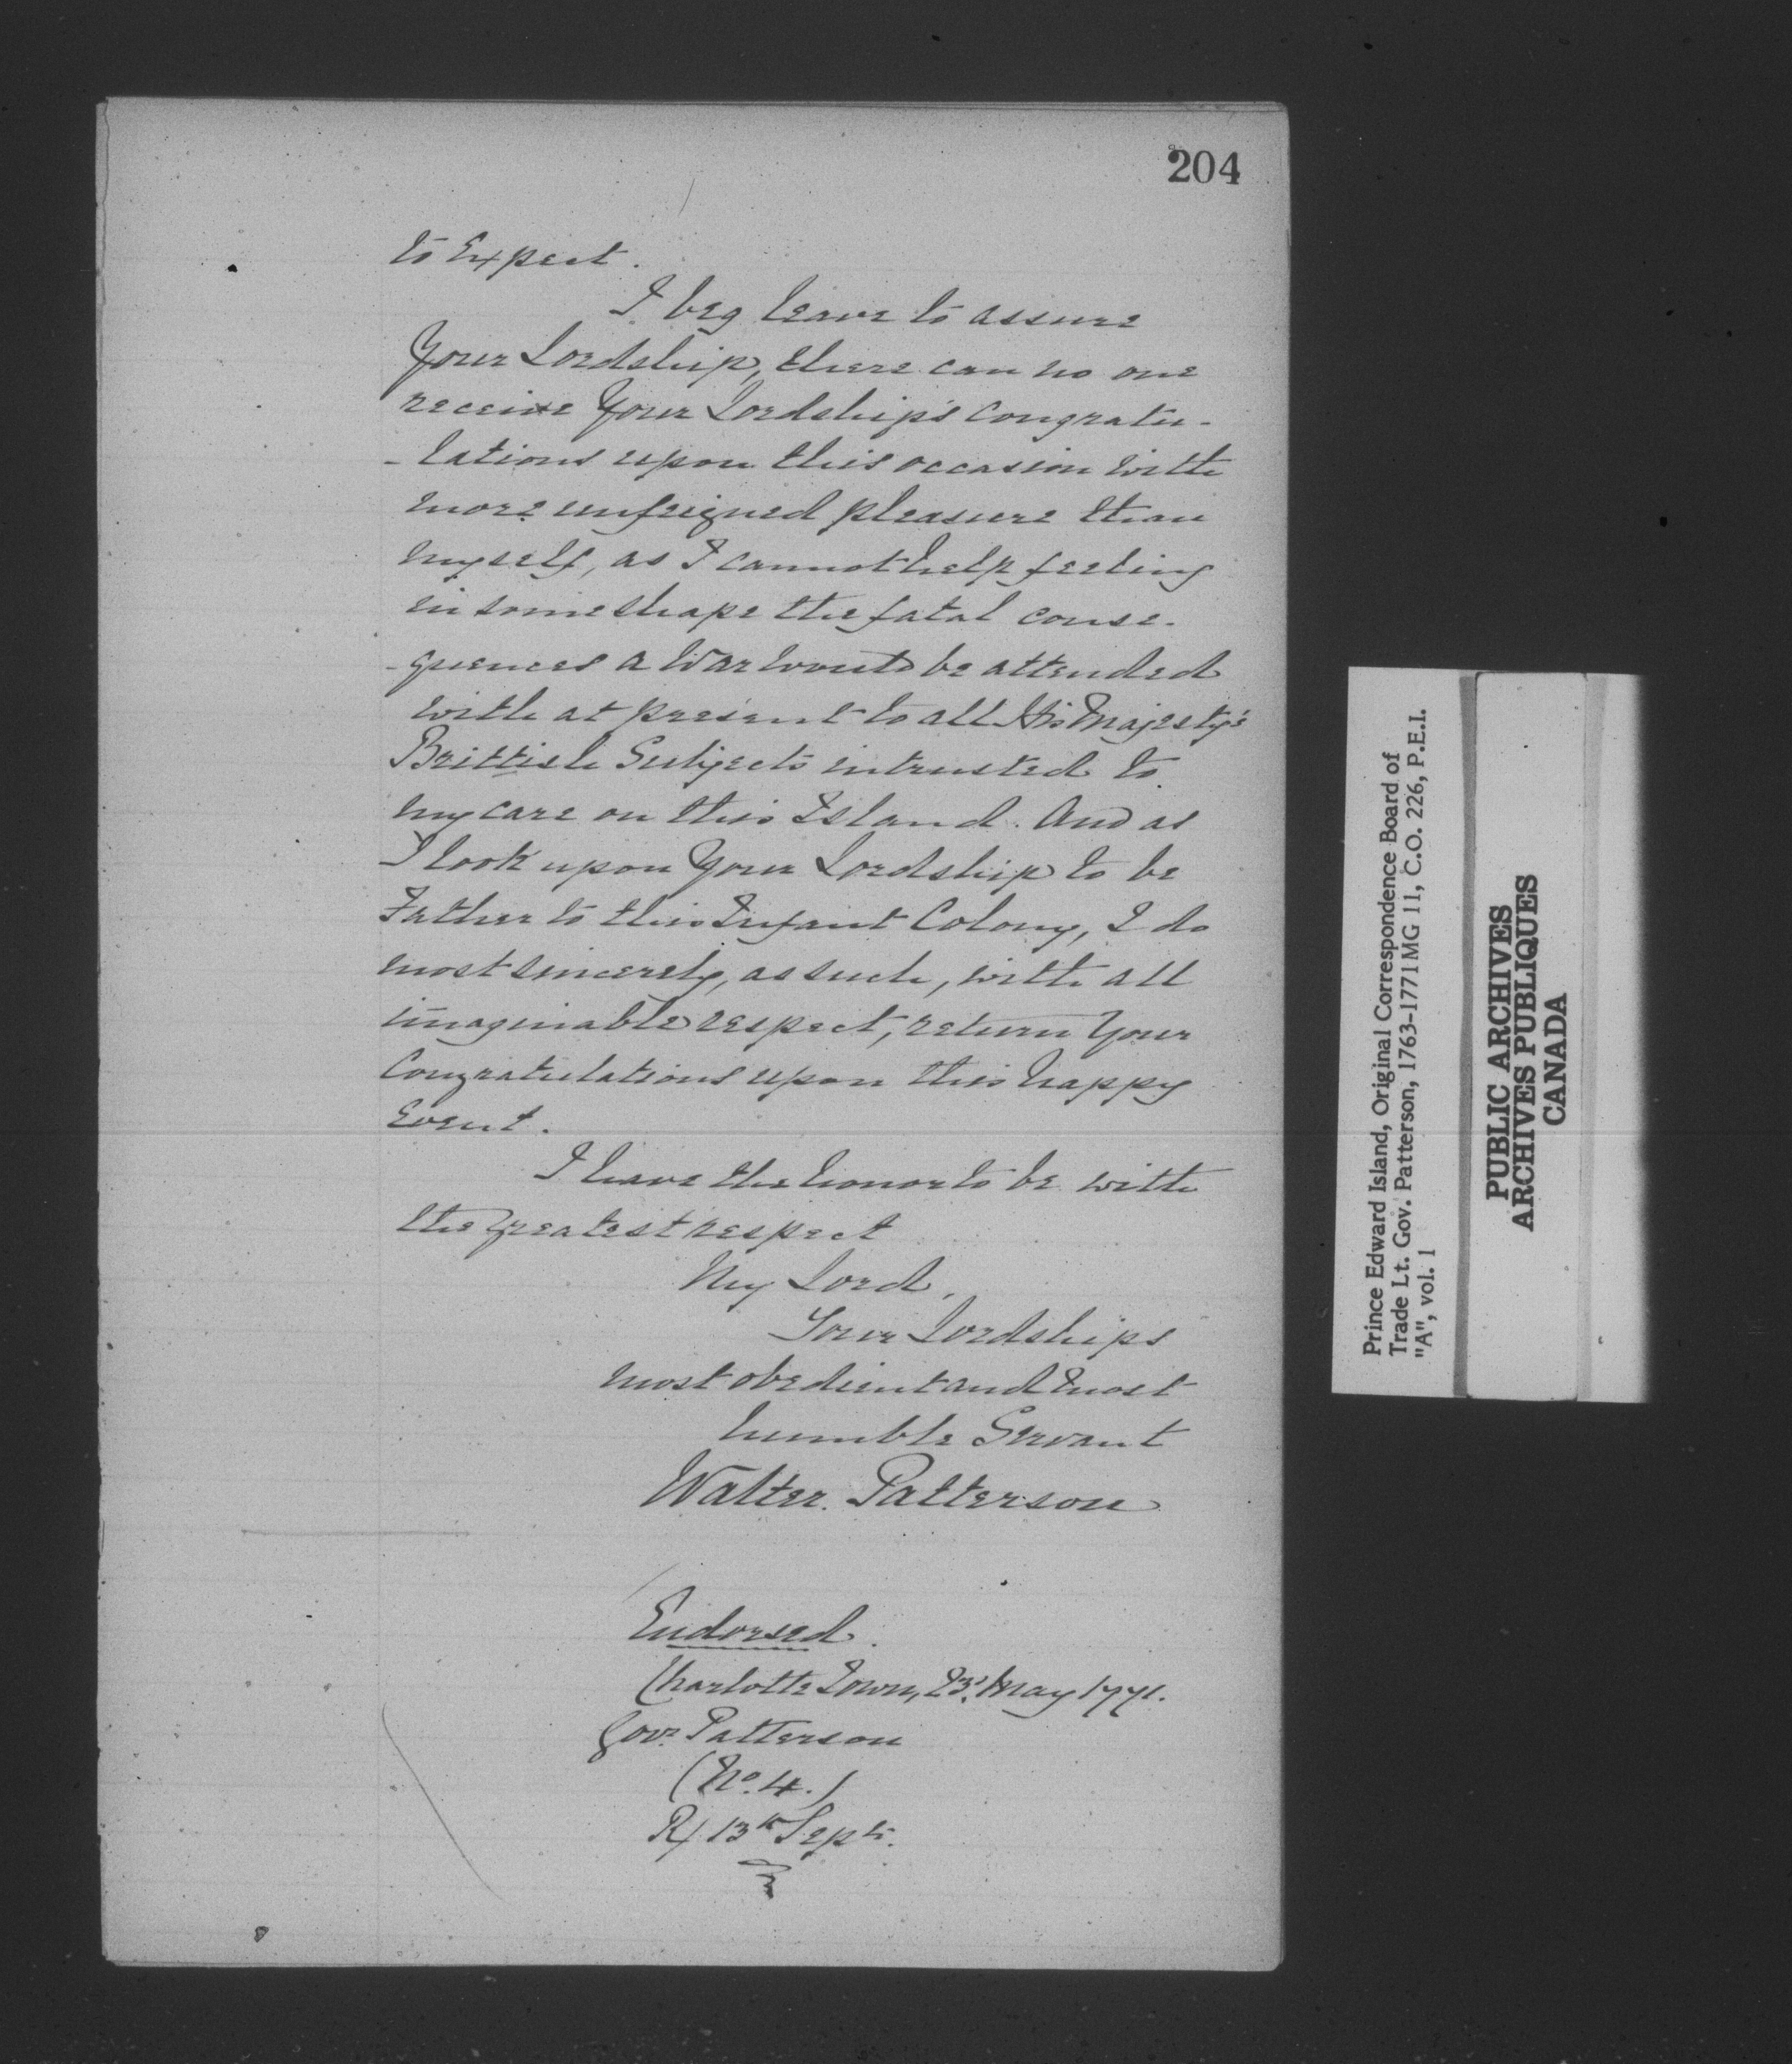 204
to Expect.
I beg leave to assure
Your Lordship, there can no one
receive Your Lordship's Congratu-
-lations upon this occasion with
more unfeigned pleasure than
myself, as I cannot help feeling
in some shape the fatal conse-
-quences a War would be attended
with at present to all His Majesty's
Brittish Subjects intrusted to
my care on this Island. And as
I look upon Your Lordship to be
Father to this Infant Colony, I do
most sincerely, as such, with all
imaginable respect, return Your
Congratulations upon this happy
Event.
I have the honor to be with
the greatest respect
My Lord,
Your Lordships
most obedient and most
humble Servant
Walter Patterson
Endorsed.
Charlotte Town, 23d. May 1771.
Govr. Patterson
(No. 4.)
R/ 13th Septr.
Prince Edward Island, Original Correspondence Board of
Trade Lt. Gov. Patterson, 1763-1771 MG 11, C.O. 226, P.E.I.
"A", vol. 1
PUBLIC ARCHIVES
ARCHIVES PUBLIQUES
CANADA